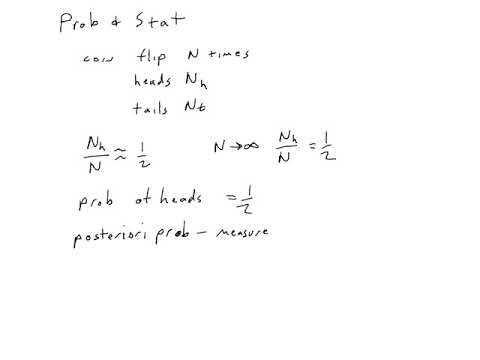 Prob & Stat
coin flip N times
heads N_h
tails N_t
N_h/N ≈ 1/2   N→∞ N_h/N = 1/2
prob of heads = 1/2
posteriori prob – measure